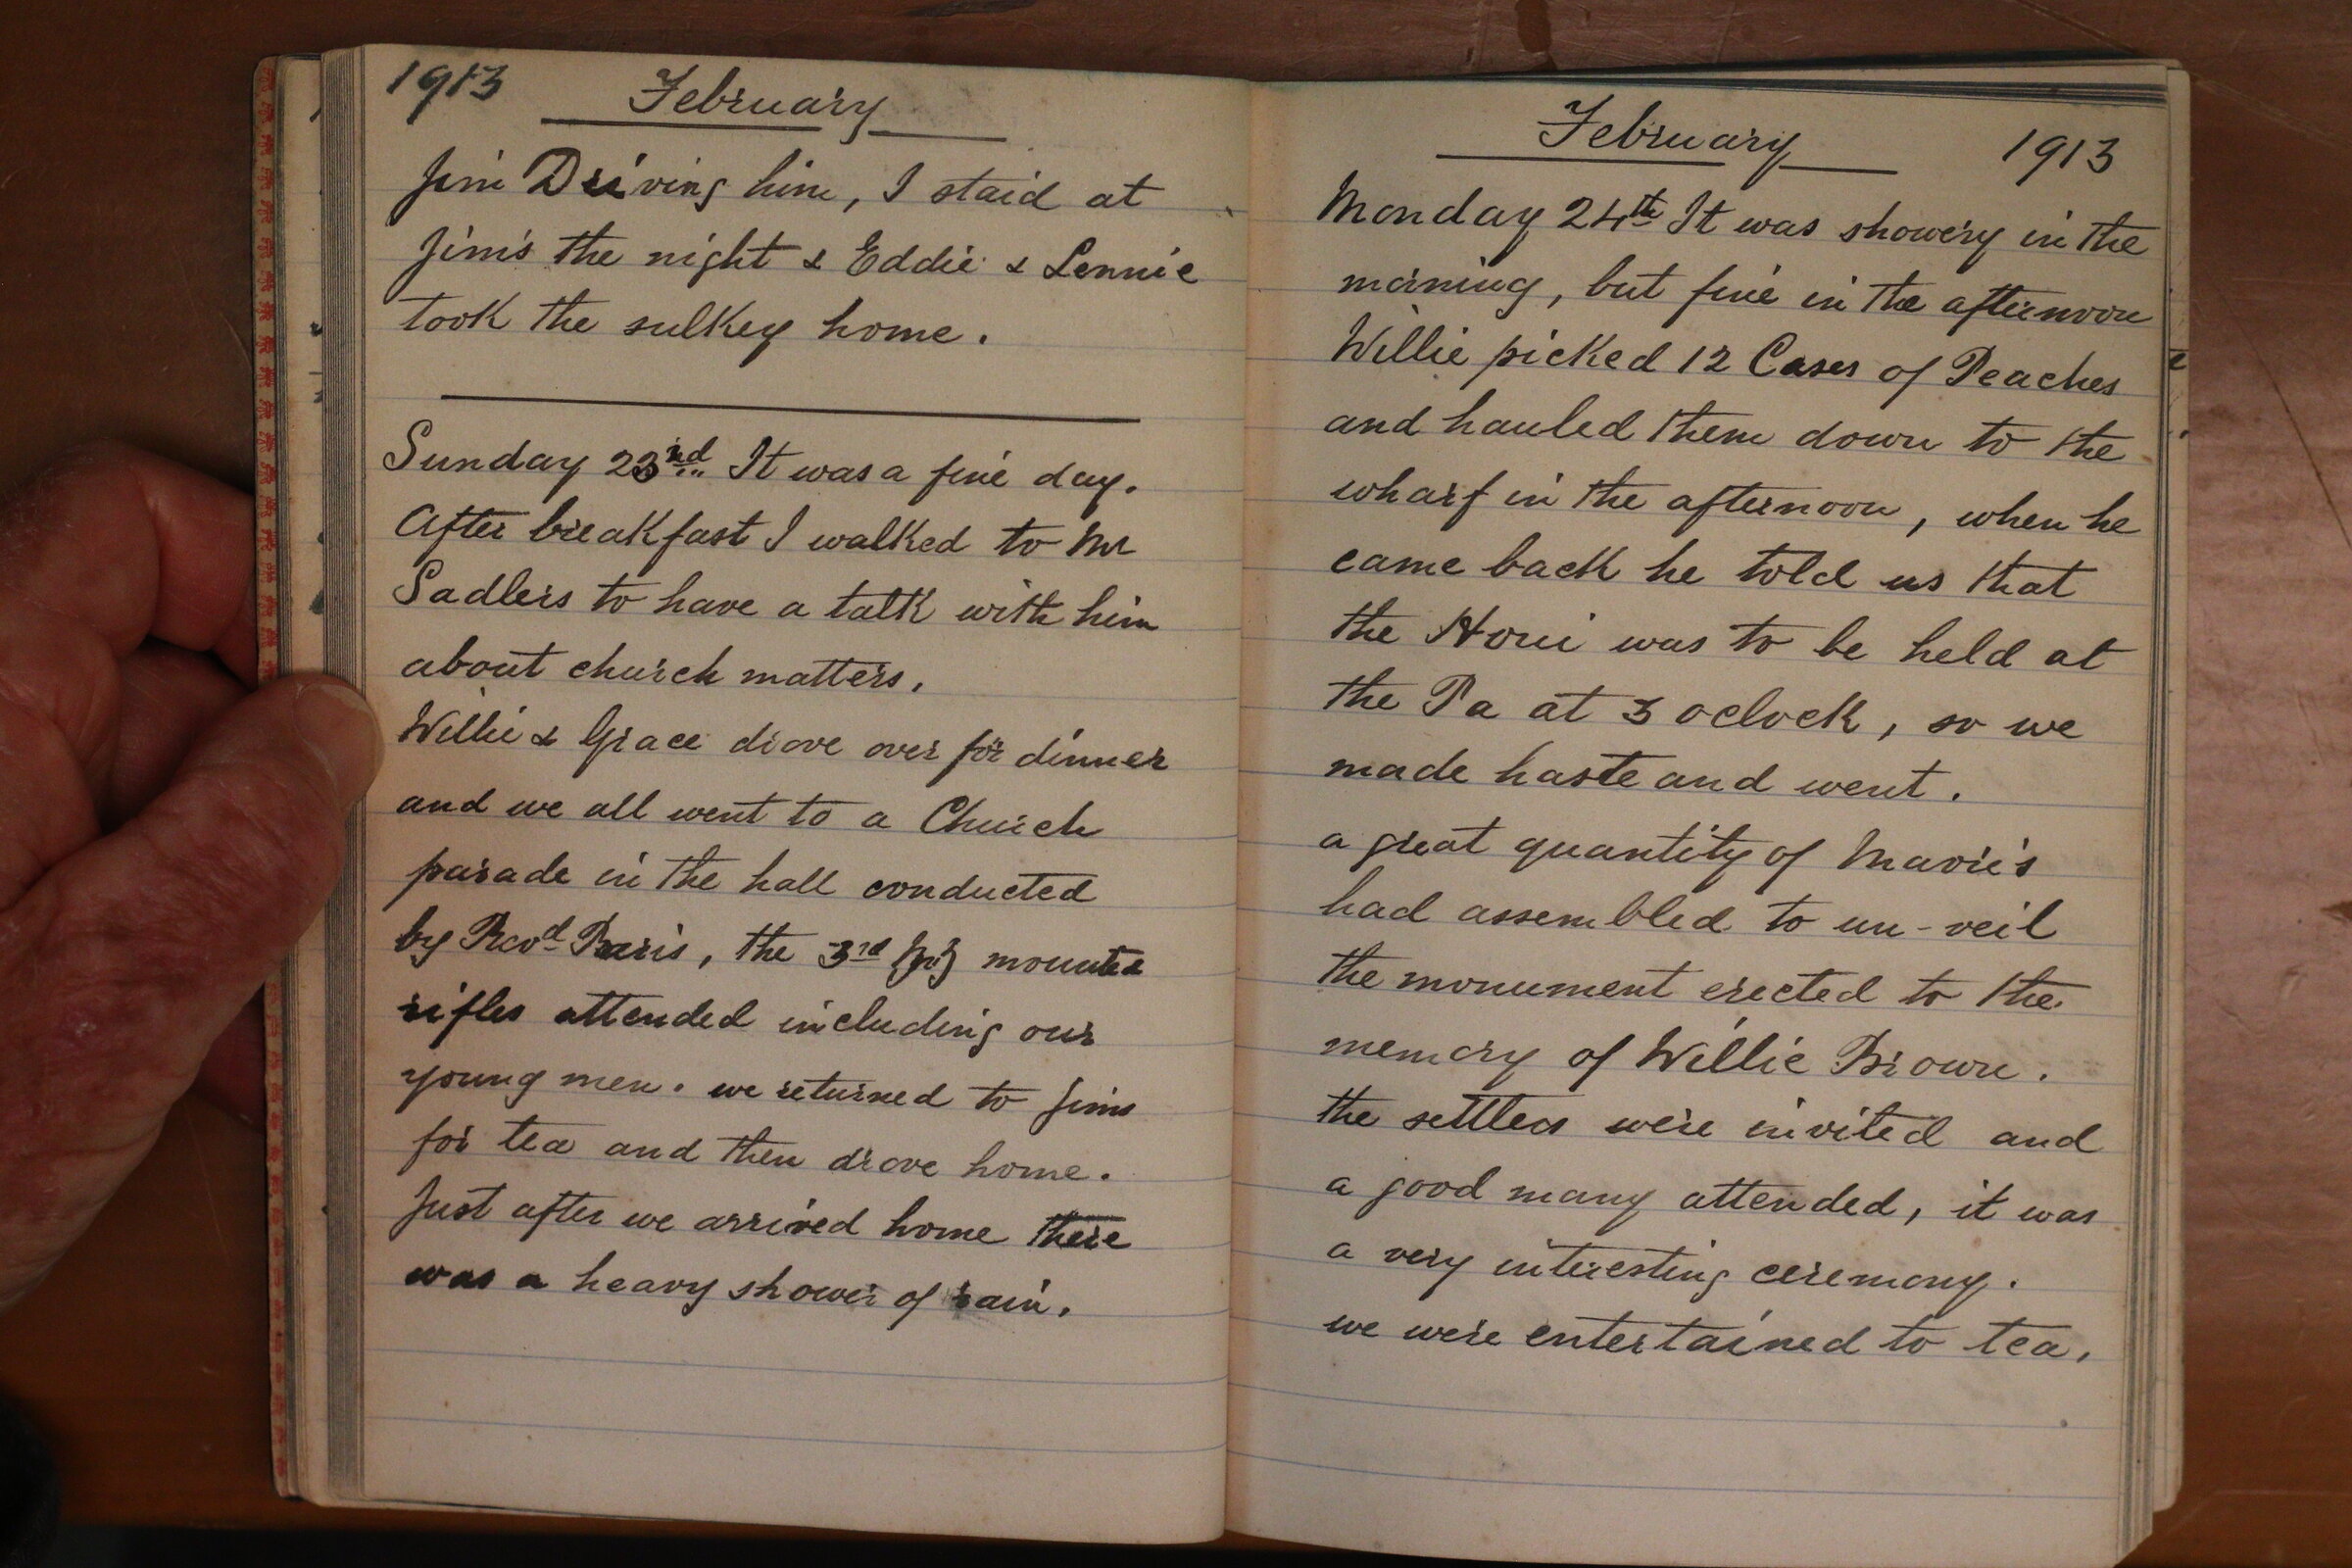 1913 February
Jim Driving him, I staid at
Jim's the night & Eddie & Lennie
took the sulkey home.
Sunday 23rd It was a fine day.
After breakfast I walked to Mr
Sadlers to have a talk with him
about church matters.
Willie & Grace drove over for dinner
and we all went to a Church
parade in the hall conducted
by Revd Paris, the 3rd mounted
rifles attended including our
young men. we returned to Jims
for tea and then drove home.
Just after we arrived home there
was a heavy shower of rain.
February 1913
Monday 24th It was showery in the
morning, but fine in the afternoon
Willie picked 12 Cases of Peaches
and hauled them down to the
wharf in the afternoon, when he
came back he told us that
the Houi was to be held at
the Pa at 3 oclock, so we
made haste and went.
a great quantity of Maori's
had assembled to un-veil
the monument erected to the
memory of Willie Brown.
the settlers were invited and
a good many attended, it was
a very interesting ceremony.
we were entertained to tea.